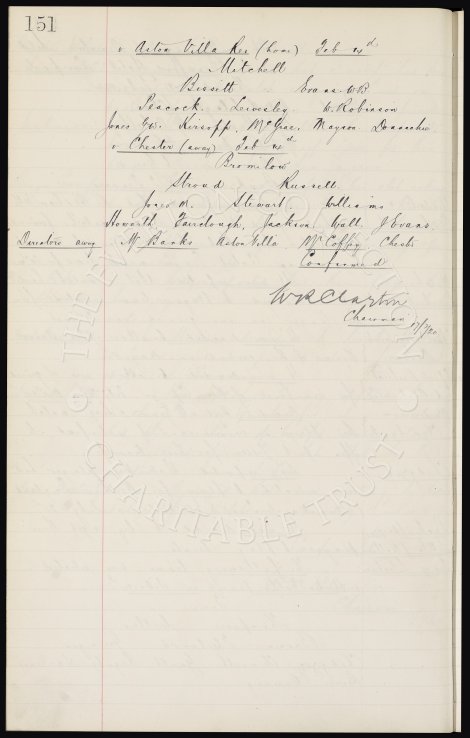 151
v Aston Villa Res (home) Feb
Mitchell
Bissett Evans. W.B
Peacock. Lewesley W. Robinson
Jones GW. Kirsopp, McGrae, Mayson Donnachie
v Chester (away) Feb
Bromilow
Stroud Russell
Jones R. Stewart. Williams
Howarth Fairclough, Jackson Wall. J Evans
Directors away Mr Banks Aston Villa Mr Coffey Chester
Confirmed
W R Clayton
Chairman
© THE EVERTON COLLECTION CHARITABLE TRUST